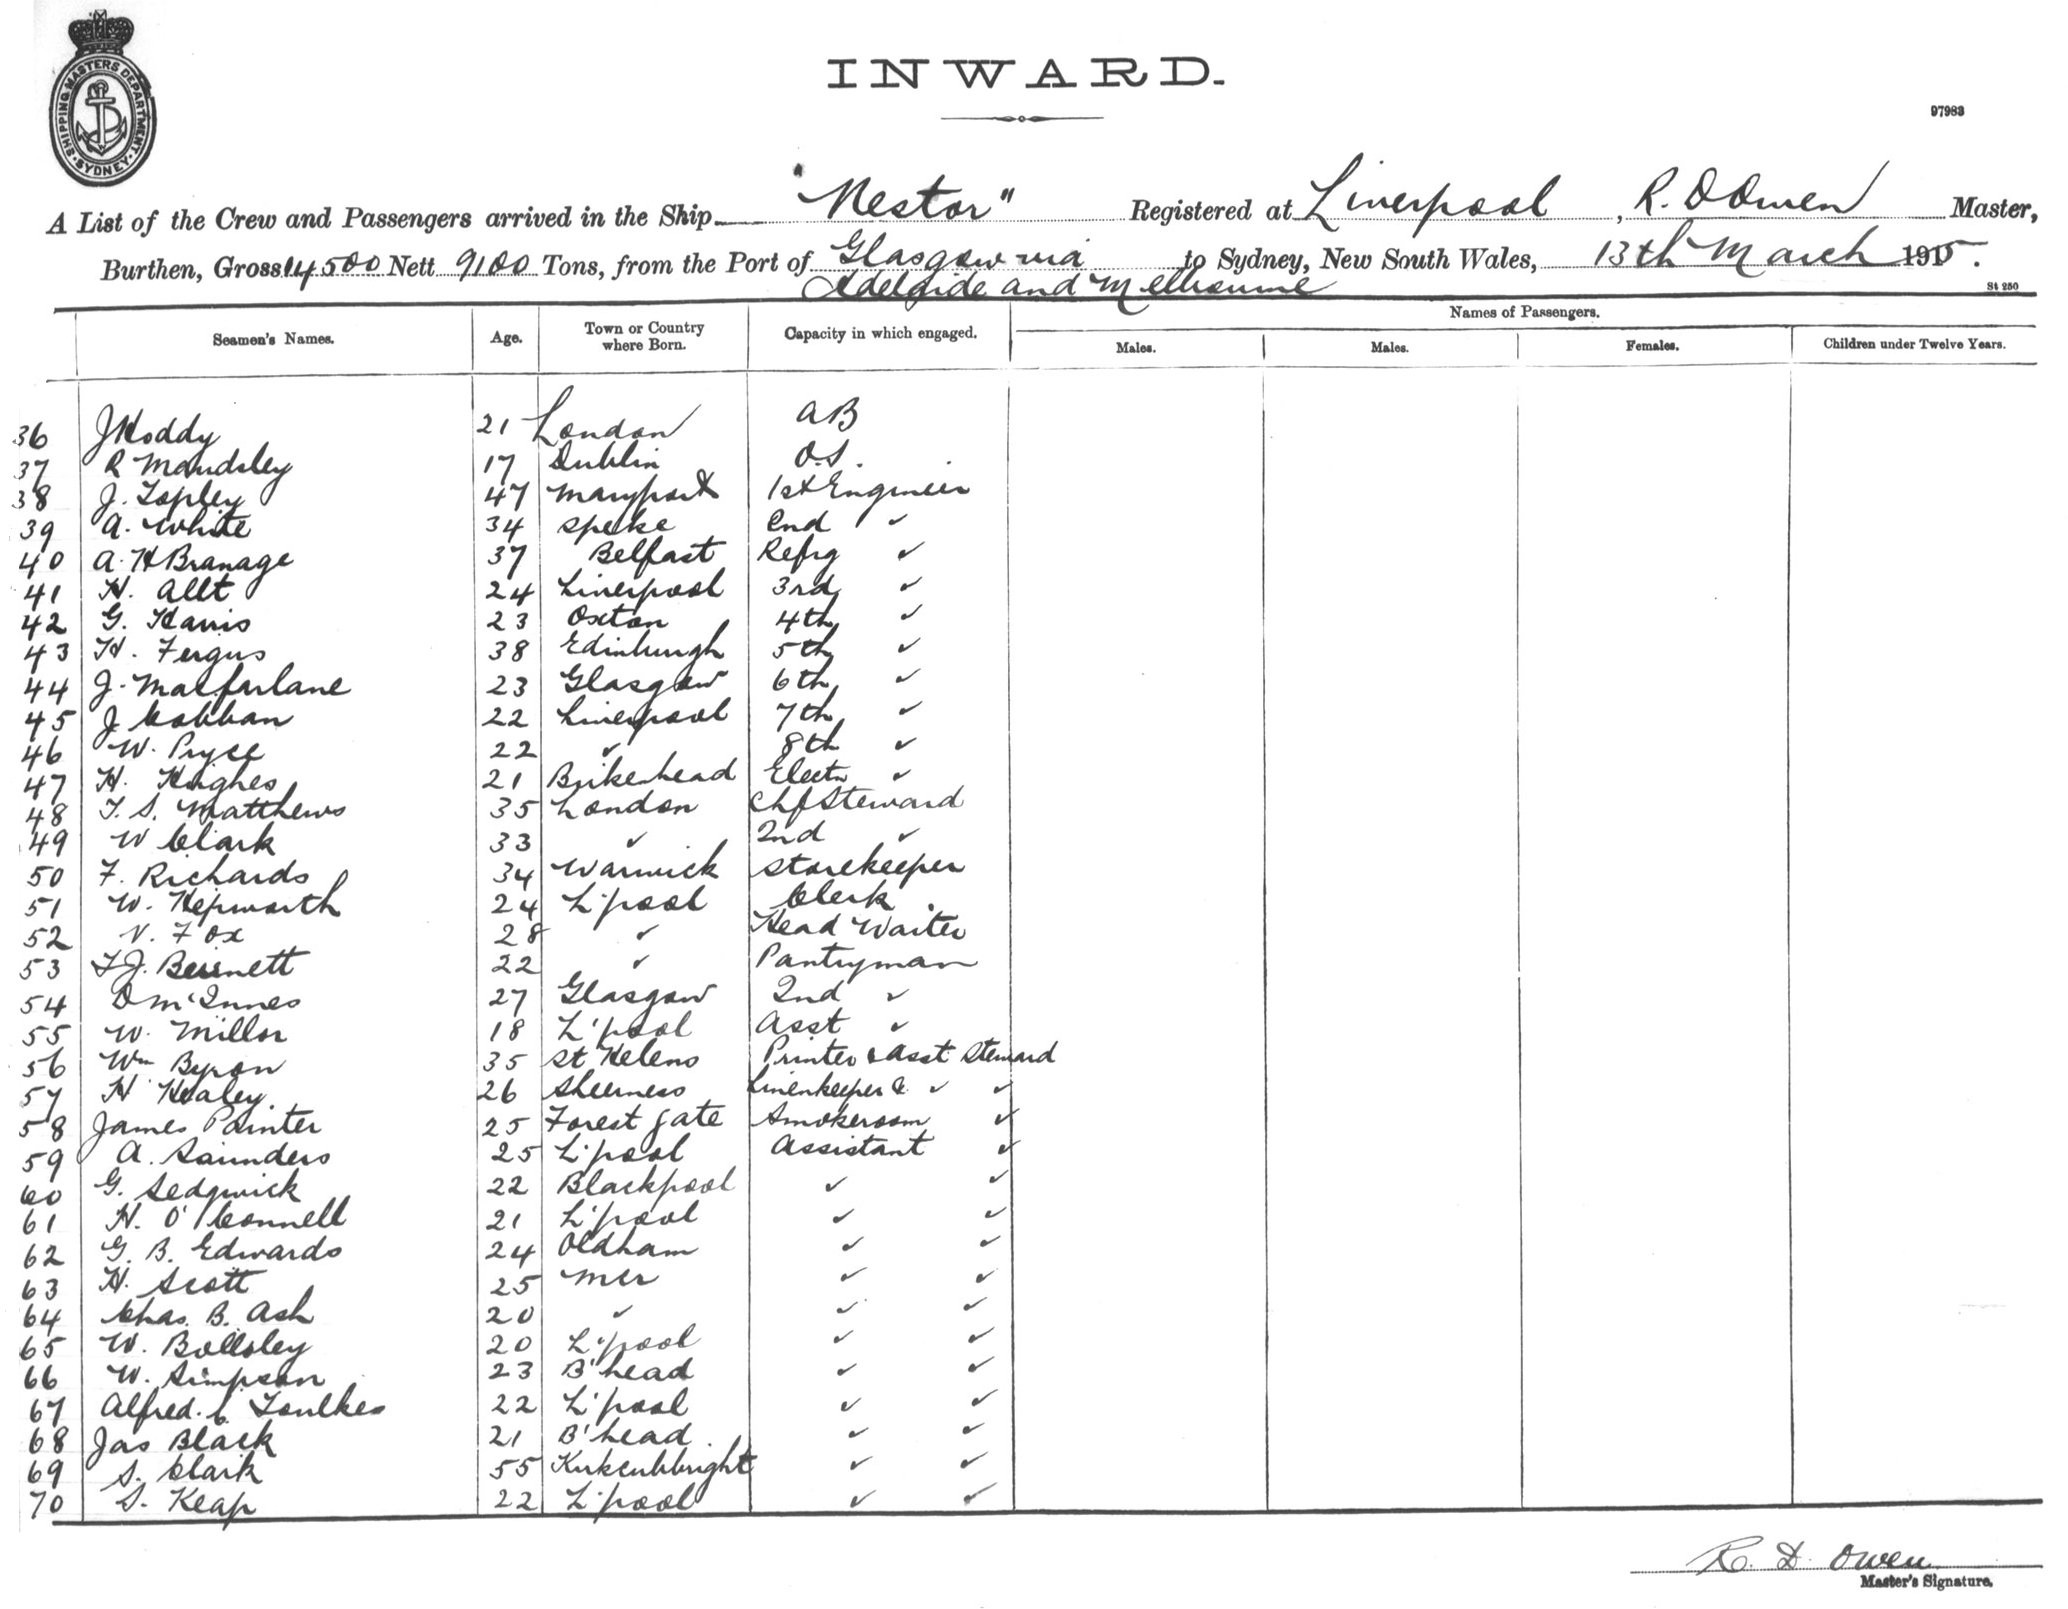 SHIPPING MASTERS DEPARTMENT · SYDNEY ·
INWARD.
97983
A List of the Crew and Passengers arrived in the Ship "Nestor" Registered at Liverpool, R. D Owen Master,
Burthen, Gross 14500 Nett 9100 Tons, from the Port of Glasgow via to Sydney, New South Wales, 13th March 1915.
Adelaide and Melbourne
St 250
Seamen's Names. Age. Town or Country where Born. Capacity in which engaged. Names of Passengers.
Males. Males. Females. Children under Twelve Years.
36 J Hoddy 21 London AB
37 R Maudsley 17 Dublin O.S.
38 J. Topley 47 Maryport 1st Engineer
39 A. White 34 Speke 2nd ✓
40 A. H Branage 37 Belfast Refrg ✓
41 H. Allt 24 Liverpool 3rd ✓
42 G. Harris 23 Oxton 4th ✓
43 H. Fergus 38 Edinburgh 5th ✓
44 J. Macfarlane 23 Glasgow 6th ✓
45 J Cobban 22 Liverpool 7th ✓
46 W. Pryce 22 ✓ 8th ✓
47 H. Hughes 21 Birkenhead Electn ✓
48 T. S. Matthews 35 London Chf Steward
49 W Clark 33 ✓ 2nd ✓
50 F. Richards 34 Warwick Storekeeper
51 W. Hepworth 24 L'pool Clerk
52 V. Fox 28 ✓ Head Waiter
53 T J. Bennett 22 ✓ Pantryman
54 D McInnes 27 Glasgow 2nd ✓
55 W. Millor 18 L'pool Asst ✓
56 Wm Byron 35 St Helens Printer & Asst Steward
57 H Healey 26 Sheerness Linenkeeper & ✓ ✓
58 James Painter 25 Forest gate Smokeroom ✓
59 A. Saunders 25 L'pool Assistant ✓
60 G. Sedgwick 22 Blackpool ✓ ✓
61 H. O'Connell 21 L'pool ✓ ✓
62 G. B. Edwards 24 Oldham ✓ ✓
63 H. Scott 25 Mcr ✓ ✓
64 Chas. B. Ash 20 ✓ ✓ ✓
65 W. 20 L'pool ✓ ✓
66 W. Simpson 23 B'head ✓ ✓
67 Alfred. C. Foulkes 22 L'pool ✓ ✓
68 Jas Black 21 B'head ✓ ✓
69 S. Clark 55 Kirkcubbright ✓ ✓
70 S. Keap 22 L'pool ✓ ✓
R. D. Owen
Master's Signature.